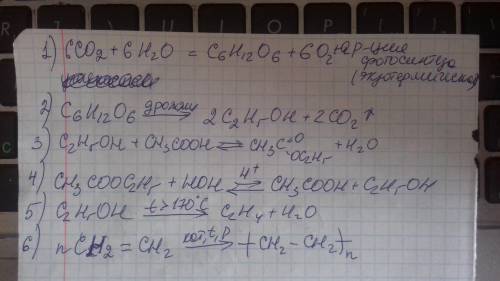 1) 6CO2 + 6H2O = C6H12O6 + 6O2 + Q р-ция
фотосинтеза
(экзотермическая)
2) C6H12O6 дрожжи→ 2C2H5OH + 2CO2↑
3) C2H5OH + CH3COOH ⇌ CH3C=O OC2H5 + H2O
4) CH3COOC2H5 + HOH H+⇌ CH3COOH + C2H5OH
5) C2H5OH t>170°C→ C2H4 + H2O
6) nCH2 = CH2 кат,t,P→ (-CH2-CH2)n